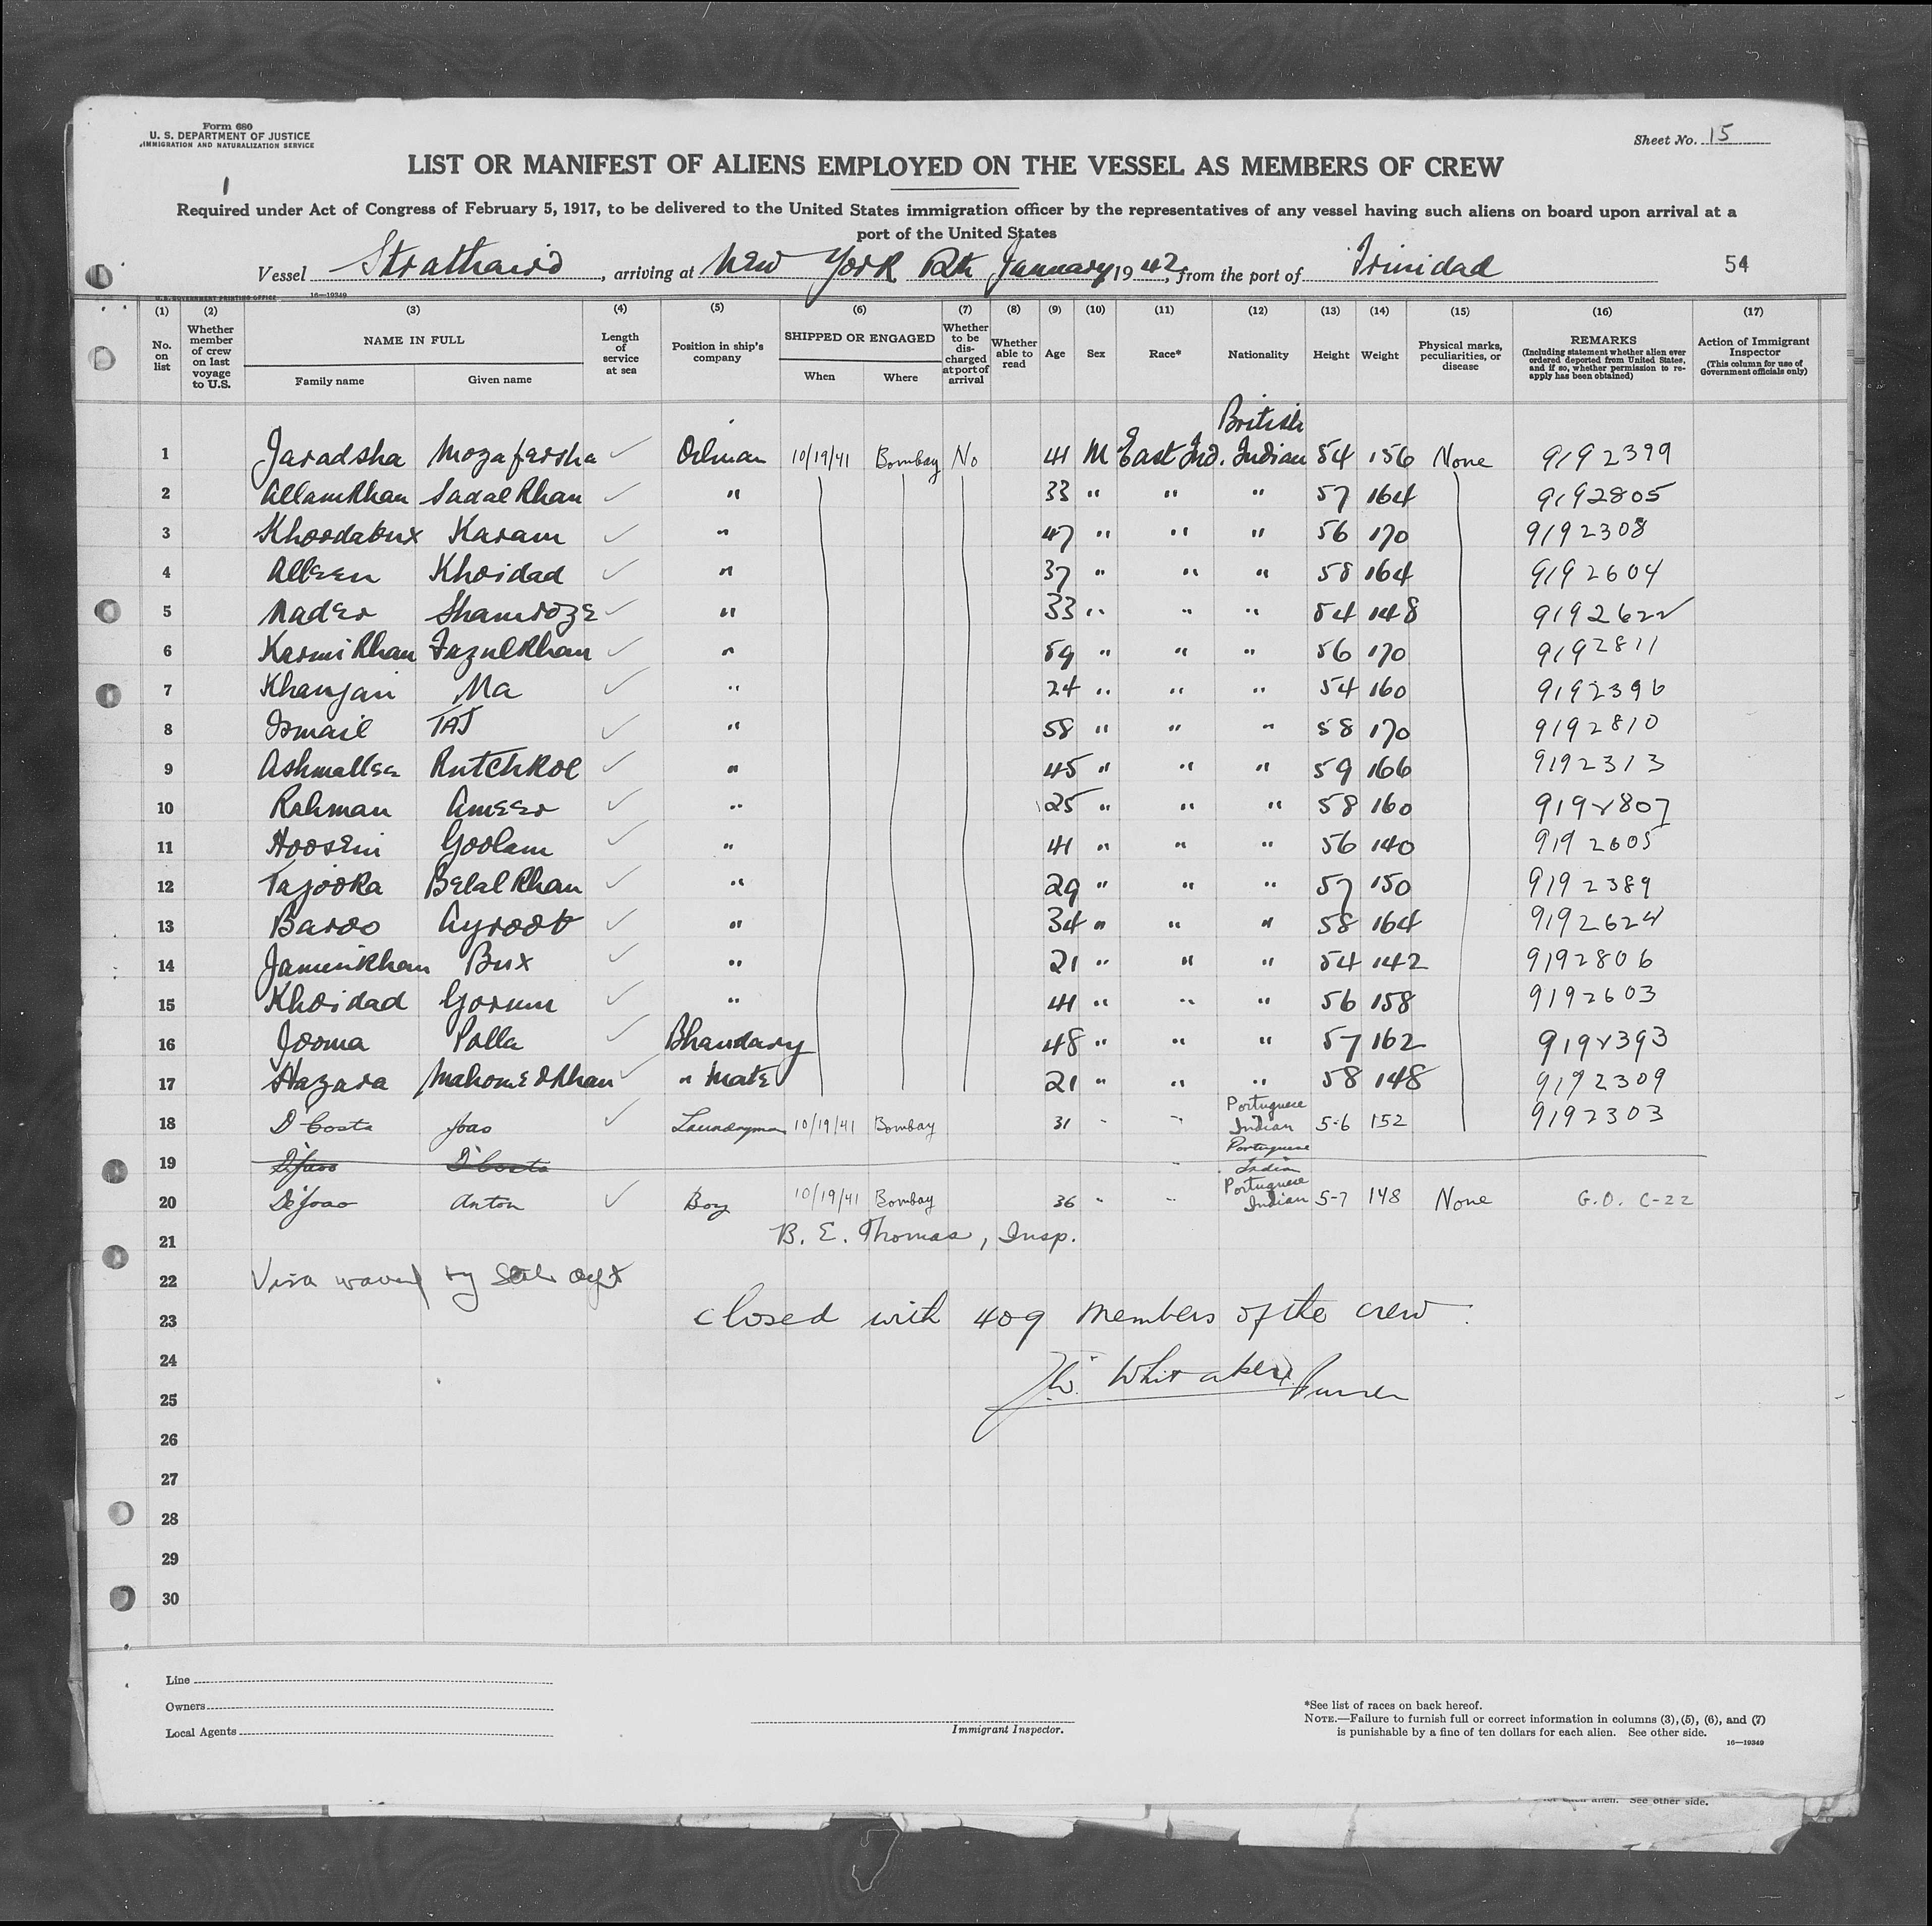 Form 680
U. S. DEPARTMENT OF JUSTICE
IMMIGRATION AND NATURALIZATION SERVICE
Sheet No. 15
LIST OR MANIFEST OF ALIENS EMPLOYED ON THE VESSEL AS MEMBERS OF CREW
Required under Act of Congress of February 5, 1917, to be delivered to the United States immigration officer by the representatives of any vessel having such aliens on board upon arrival at a
port of the United States
Vessel Strathaird, arriving at New York 12th January 1942, from the port of Trinidad 54
U. S. GOVERNMENT PRINTING OFFICE 16—19349
(1) No. on list
(2) Whether member of crew on last voyage to U.S.
(3) NAME IN FULL Family name Given name
(4) Length of service at sea
(5) Position in ship's company
(6) SHIPPED OR ENGAGED When Where
(7) Whether to be discharged at port of arrival
(8) Whether able to read
(9) Age
(10) Sex
(11) Race*
(12) Nationality
(13) Height
(14) Weight
(15) Physical marks, peculiarities, or disease
(16) REMARKS (Including statement whether alien ever ordered deported from United States, and if so, whether permission to reapply has been obtained)
(17) Action of Immigrant Inspector (This column for use of Government officials only)
British
1 Jaradsha Mozafarsha ✓ Oilman 10/19/41 Bombay No 41 M East Ind. Indian 54 156 None 9192399
2 AllamKhan SadalKhan ✓ " 33 " " " 57 164 9192805
3 Khoodabux Karam ✓ " 47 " " " 56 170 9192308
4 Alleen Khoidad ✓ " 37 " " " 58 164 9192604
5 Nader Shamroze ✓ " 33 " " " 54 148 9192622
6 KarmiKhan FazulKhan ✓ " 59 " " " 56 170 9192811
7 Khanjan Ma ✓ " 24 " " " 54 160 9192396
8 Ismail TAJ ✓ " 58 " " " 58 170 9192810
9 Ashmallee Rutchkoe ✓ " 45 " " " 59 166 9192313
10 Rahman Ameer ✓ " 25 " " " 58 160 9192807
11 Hoosein Goolam ✓ " 41 " " " 56 140 9192605
12 Tajooka BelalKhan ✓ " 29 " " " 57 150 9192389
13 Baroo Ayroob ✓ " 34 " " " 58 164 9192624
14 Jamunkhan Bux ✓ " 21 " " " 54 142 9192806
15 Khoidad Gorum ✓ " 41 " " " 56 158 9192603
16 Jooma Palla ✓ Bhandary 48 " " " 57 162 9192393
17 Hazara MahomedKhan ✓ " Mate 21 " " " 58 148 9192309
18 D'Costa Joao ✓ Laundryman 10/19/41 Bombay 31 " " Portuguese Indian 5-6 152 9192303
19 D'Costa " Portuguese Indian
20 De Joao Anton ✓ Boy 10/19/41 Bombay 36 " " Portuguese Indian 5-7 148 None G.O. C-22
21 B. E. Thomas, Insp.
22 Visa waived by State Dept
23 Closed with 409 members of the crew.
24 Whitaker
25 Purser
26
27
28
29
30
Line
Owners
Local Agents
Immigrant Inspector.
*See list of races on back hereof.
NOTE.—Failure to furnish full or correct information in columns (3), (5), (6), and (7)
is punishable by a fine of ten dollars for each alien. See other side.
16—19349
alien. See other side.